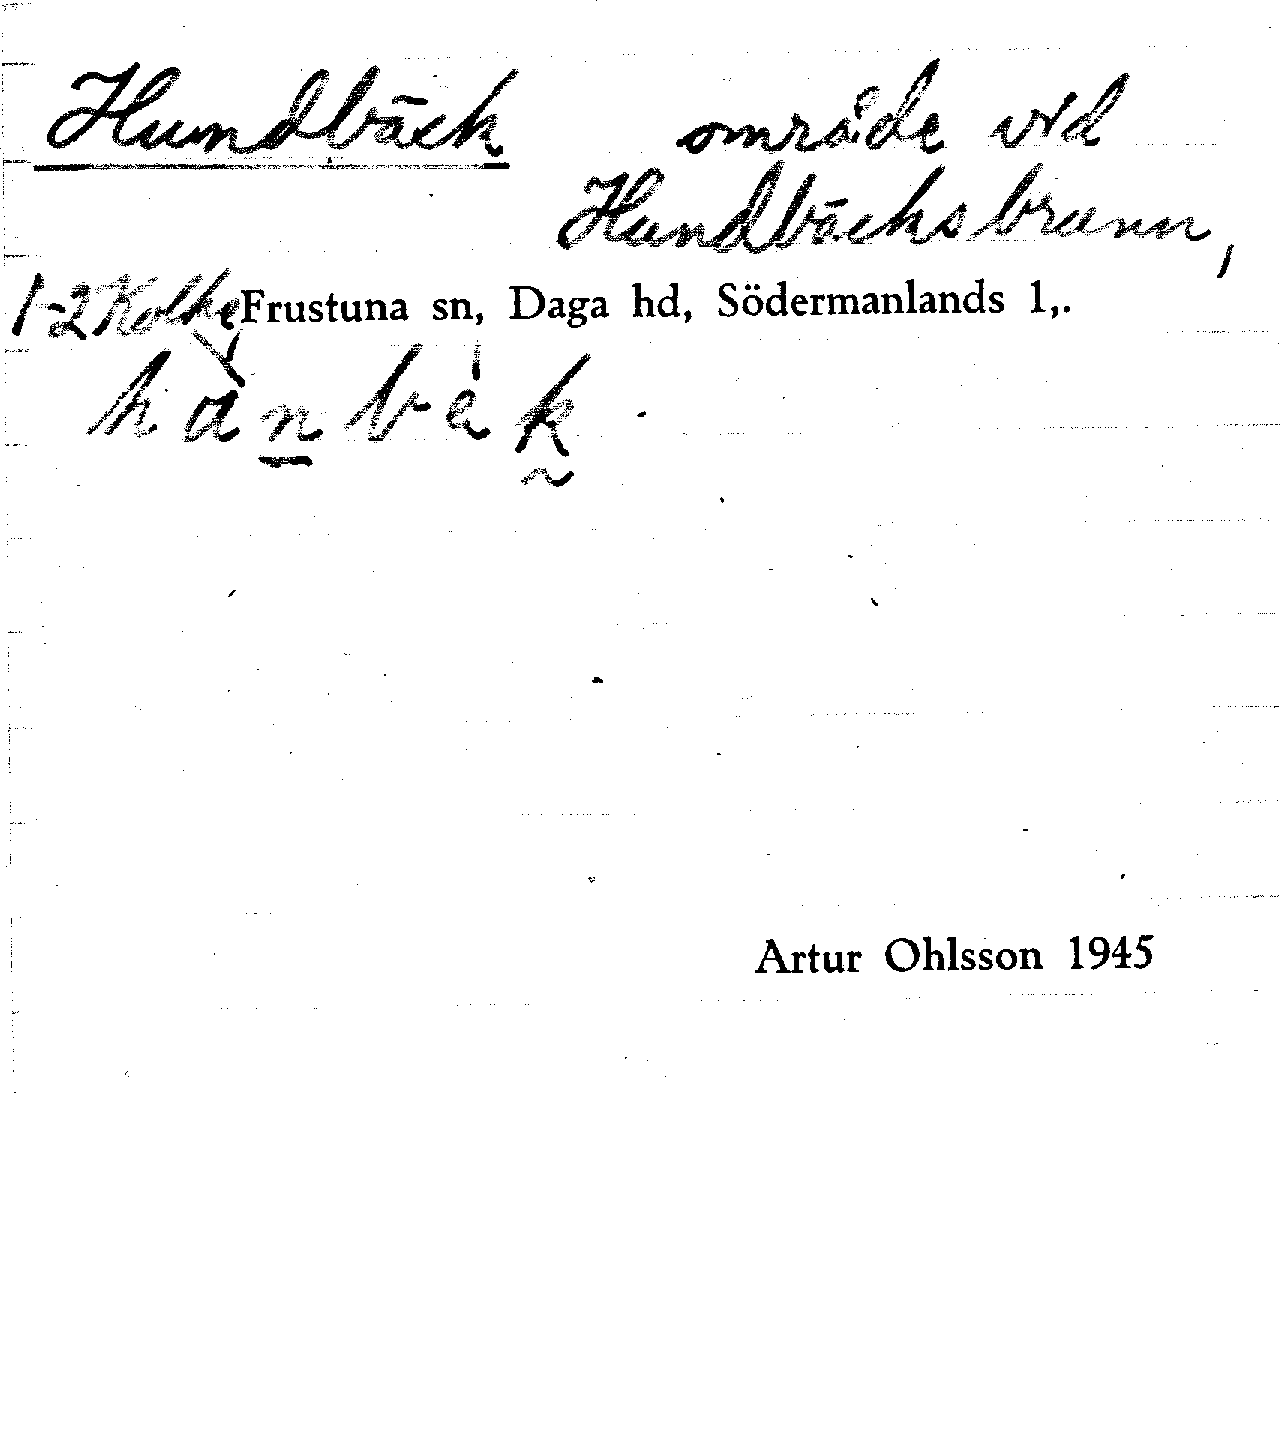 Hundbäck område vid
Hundbäcksbrunn,
1-2 Kolke Frustuna sn, Daga hd, Södermanlands l,.
Artur Ohlsson 1945